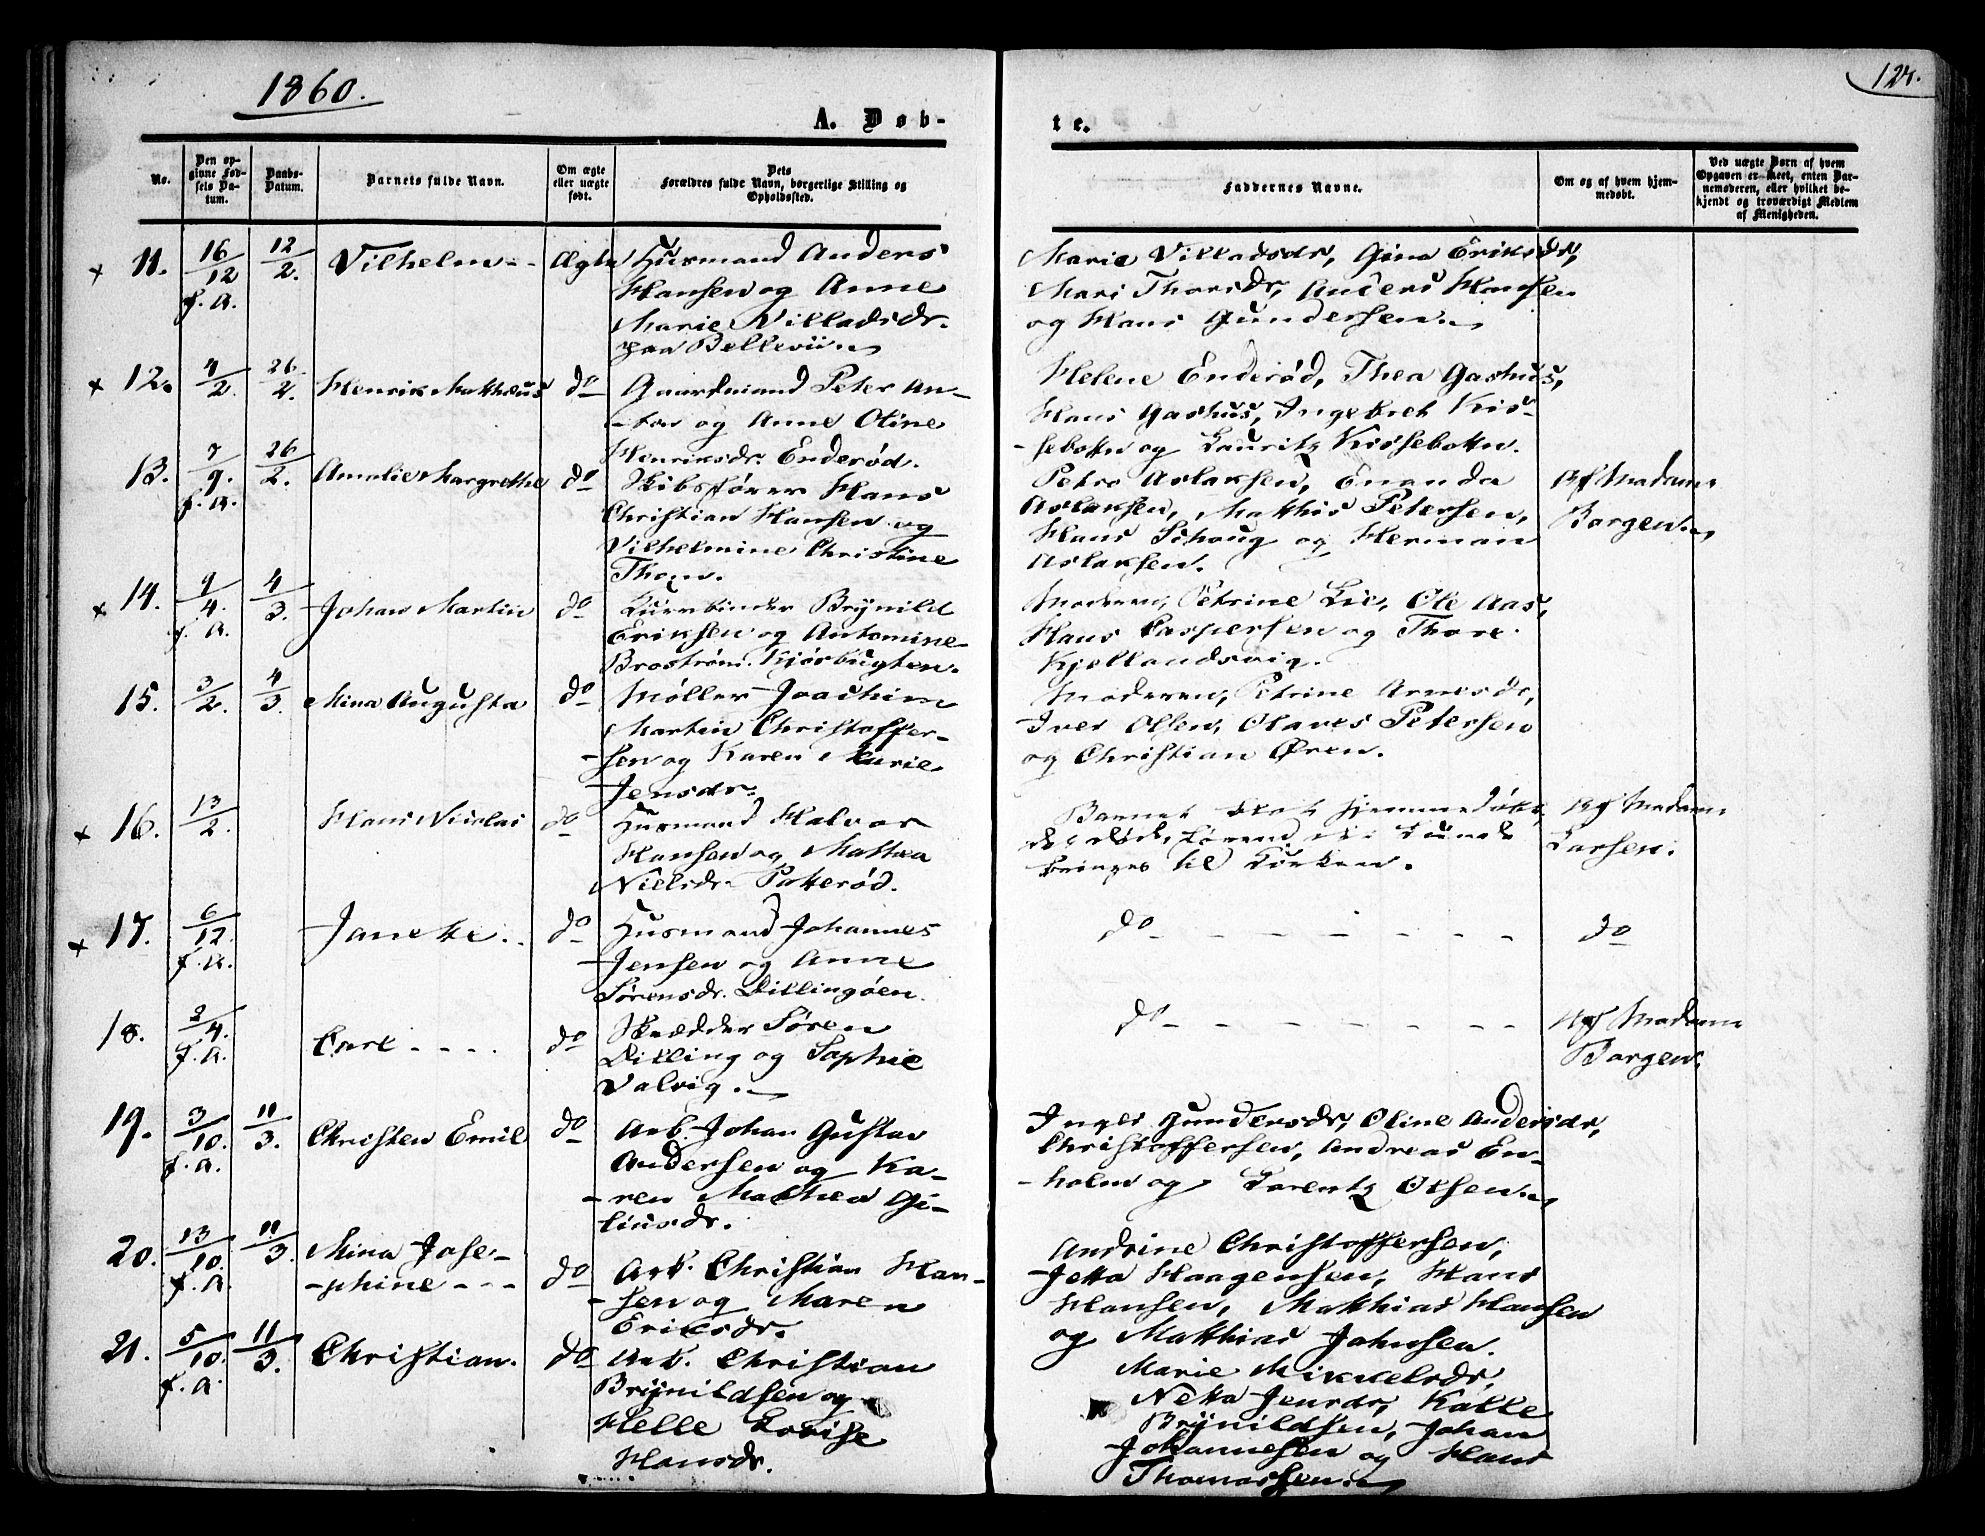 1860.
124.
A. Døb-
te.
No.
Den op-
givne Fød-
sels Da-
tum.
Daabs-
Datum.
Barnets fulde Navn.
Om ægte
eller uægte
født.
Dets
Forældres fulde Navn, borgerlige Stilling og
Opholdssted.
Faddernes Navne.
Om og af hvem hjem-
medøbt.
Ved uægte Børn af hvem
Opgaven er skeet, enten Bar-
nemoderen, eller hvilket be-
kjendt og troværdigt Medlem
af Menigheden.
x 11. 16/12 f.a. 12/2. Vilhelm - - Ægte Husmand Anders
Hansen og Anne
Marie Villadsdr.
paa Bellevue
Marie Villadsdr, Gina Eriksdr,
Mari Thorsdr, Anders Hansen
og Hans Gundersen.
x 12. 4/2. 26/2. Henrik Matthæus do Gaardmand Peter An-
-ton og Anne Oline
Henriksdr. Enderød.
Helene Enderød, Thea Gashus,
Hans Gashus, Ingebret Kris-
-sebotn og Lauritz Krissebotn.
13. 7/9. f.a. 26/2. Amalie Margrethe do Skibsfører Hans
Christian Hansen og
Vilhelmine Christine
Thom.
Petra Aslaksen, Enanda
Aslaksen, Matthis Petersen,
Hans Schoug og Herman
Aslaksen.
Af Madam
Borgen
x 14. 9/4. f.a. 4/3. Johan Martin do Luurbinder Brynild
Eriksen og Antomine
Broström. Kjøsbugten.
Moderen, Petrine Lie, Ole Aas,
Hans Caspersen og Thore
Kjellandsvig.
15. 3/2. 4/3. Mina Augusta do Møller Joachim
Martin Christoffer-
-sen og Karen Marie
Jensdr.
Moderen, Petrine Arnesdr,
Iver Olsen, Olaves Petersen
og Christian Øren.
x 16. 13/2. Hans Nicolai do Husmand Halvor
Hansen og Mathea
Nielsdr. Patterød.
Barnet blev hjemmedøbt,
og døde, førend det kunde
bringes til Kirken.
Af Madam
Larsen.
x 17. 6/12. f.a. Janette. . do Husmand Johannes
Jensen og Anne
Sørensdr. Dillingøen.
do - - - - - - -
do
18. 2/4. f.a. Carl - - - - do Skrædder Søren
Dilling og Sophie
Valvig.
do - - - - - - -
Af Madam
Borgen.
19. 3/10. f.a. 11/3. Christen Emil do Arb. Johan Gustav
Andersen og Ka-
-ren Mathea Gi-
liusdr.
Inger Gundersdr, Oline Andersdr,
Christoffersen, Andreas En-
-holm og Lorentz Olsen
20. 13/10. f.a. 11/3. Mina Jose-
-phine - - - do Arb. Christian Han-
-sen og Maren
Eriksdr.
Andrine Christoffersen,
Jetta Haagensen, Hans
Hansen, Matthias Hansen
og Matthias Johnsen.
21. 5/10. f.a. 11/3. Christian. do Arb. Christian
Brynildsen og
Helle Lovise
Hansdr.
Marie Mikkelsdr,
Netta Jensdr, Kalle
Brynildsen, Johan
Johannesen og Hans
Thomassen.